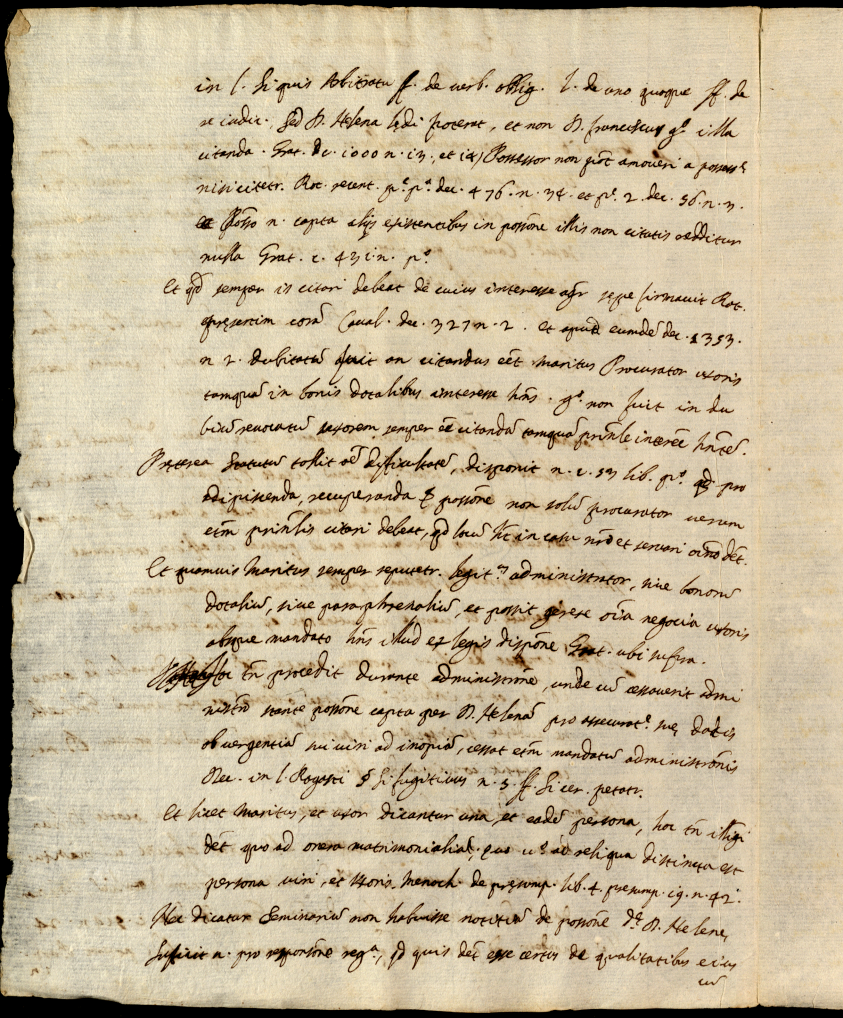 in l. Si quis Arbitratu ff. de verb. oblig. l. de uno quoque ff. de
re iudic. Sed D. Helena lędi poterat, et non D. Franciscus gº illa
citanda. Grat. dc. 1000 n. 13., et Possessor non põt amoveri a possess.e
nisi citetr. Rot. recent. pe. pa. dec. 476. n. 34. et pe. 2. dec. 56. n. 3.
Posso n. capta alijs existentibus in possõne illis non citatis redditur
nulla Grat. c. 431. n. pº
Et qđ semper is citari debeat de cuius interesse agr sepe firmavit Rot.
pręsertim corã Caval. dec. 327 n. 2. et apud eumdẽ dec. 1353.
n 2. dubitatũ fuit an citandus eẽt maritus Procurator uxoris
tamquã in bonis dotalibus interesse hñs. gº. non fuit in du
biũ revocatũ uxorem semper eẽ citandã tamquã prinle interẽe hñtẽ.
Pręterea Statutũ tollit oẽ difficultatẽ, disponit n. c. 53 lib. pº. qđ pro
adipiscenda, recuperanda possõne non solũ procurator verum
etm prinlis citari debeat, qđ locũ hẽt in casu nrõ et servari oĩno dẽt.
Et quamvis Maritus semper reputetr. legit.s administrator, sive bonorũ
dotaliũ, sive paraphrenaliũ, et possit gerere oĩa negocia uxoris
absque mandato hñs illud ex legis dispõne Grat. ubi supra.
hoc tñ procedit durante administrõne, unde cũ cessaverit admi
nistrõ stante possõne capta per D. Helenã pro assecurat.e suę dotis
ob vergentiã sui viri ad inopiã, cessat etm mandatũ administrõnis
Dec. in l. Rogasti § Si fugitivus n. 3. ff. Si cer. petatr.
Et licet Maritus, et uxor dicantur una, et eadẽ persona, hoc tñ illigi
dẽt quo ad onera matrimonialia, quo vº. ad reliqua distincta est
persona viri, et Uxoris. Menoch. de pręsump. lib. 4. presump. 19. n. 42.
Nec dicatur Seminariũ non habuisse notitiã de possõne de. D. Helenę
Sufficit n. pro responsõne rega., qđ quis dẽt esse certus de qualitatibus eius
cũ